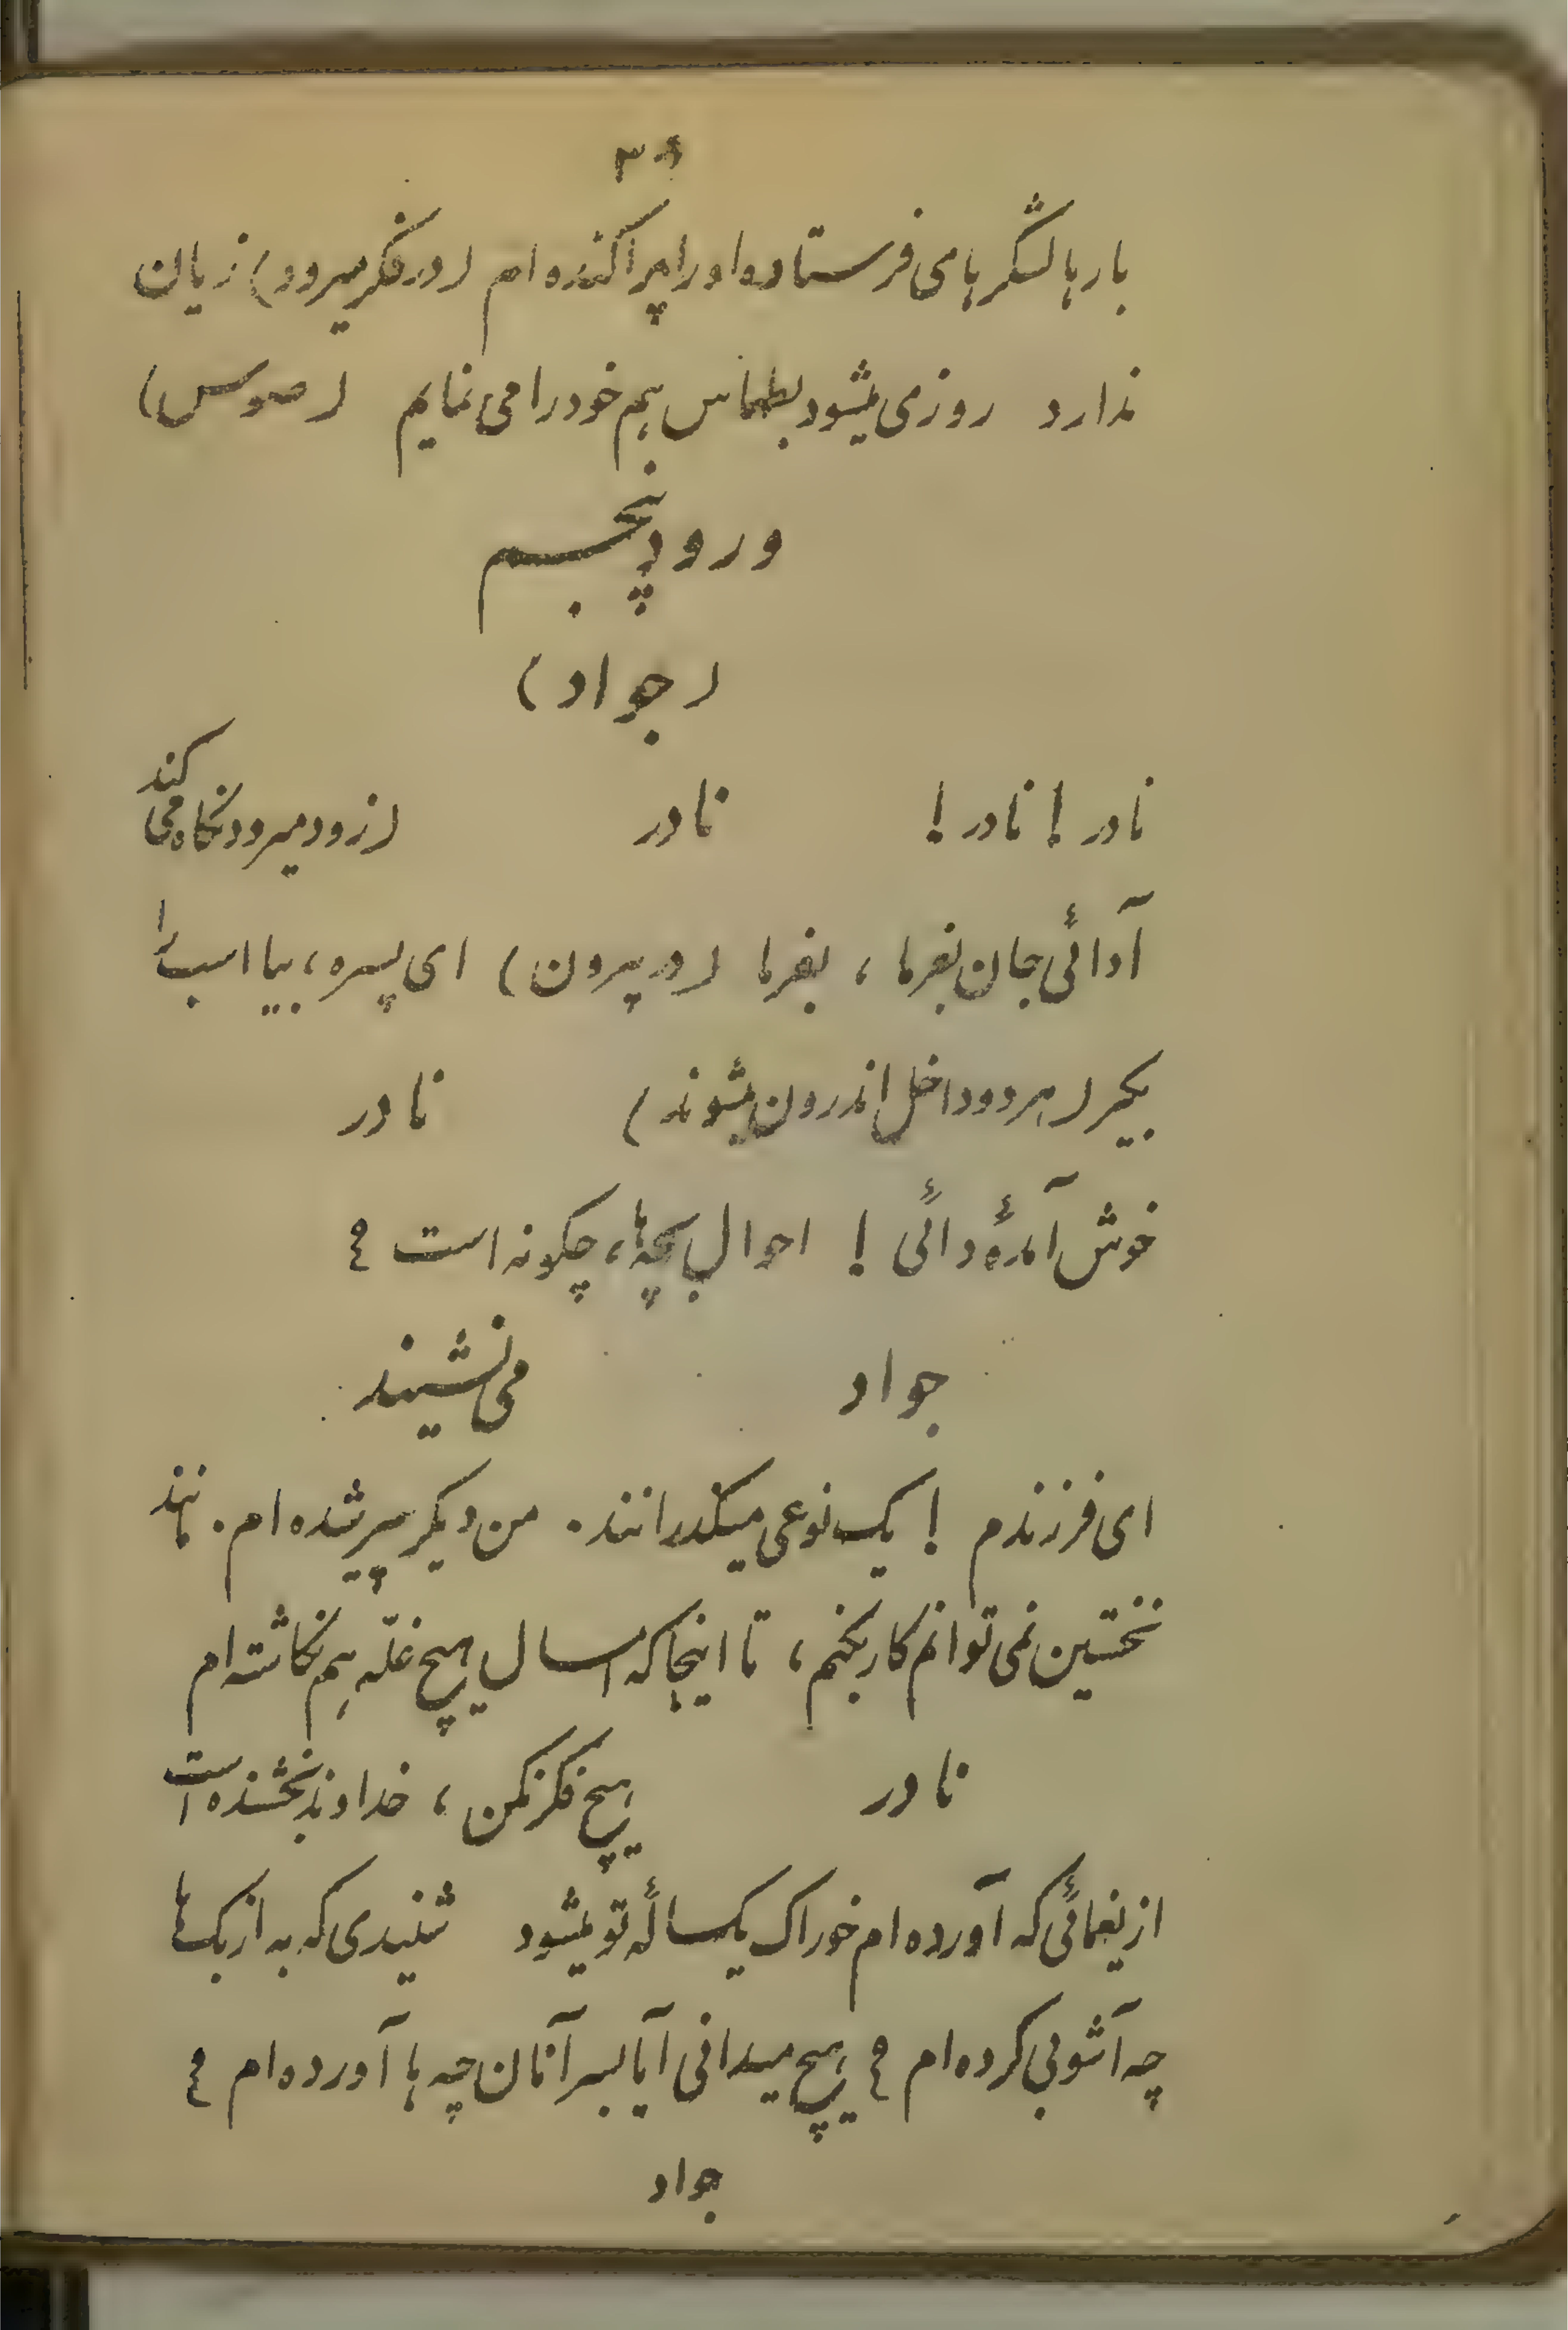 بارها لشگرهای فرستاده اورا پراکنده ام (در فکر میرود) زیان
ندارد روزی میشود بطهماس هم خودرا می نمایم (صوس)
ورود پنجم
(جواد)
نادر! نادر! نادر (زود میرود نگاه می کند
آدائی جان بفرما، بفرما (در بیرون) ای پسره، بیا اسب را
بگیر (هردو داخل اندرون میشوند) نادر
خوش آمدهٔ دائی! احوال بچه ها، چگونه است؟
جواد می نشیند
ای فرزندم! یک نوعی میگذرانند. من دیگر پیر شده ام. مانند
نخستین نمی توانم کار بکنم، تا اینجا که امسال هیچ غلّه هم نکاشته ام
نادر هیچ فکر نکن، خداوند بخشنده است
از یغمائی که آورده ام خوراک یکسالهٔ تو میشود شنیدی که به ازبک ها
چه آشوبی کرده ام؟ هیچ میدانی آیا بسر آنان چه ها آورده ام؟
جواد